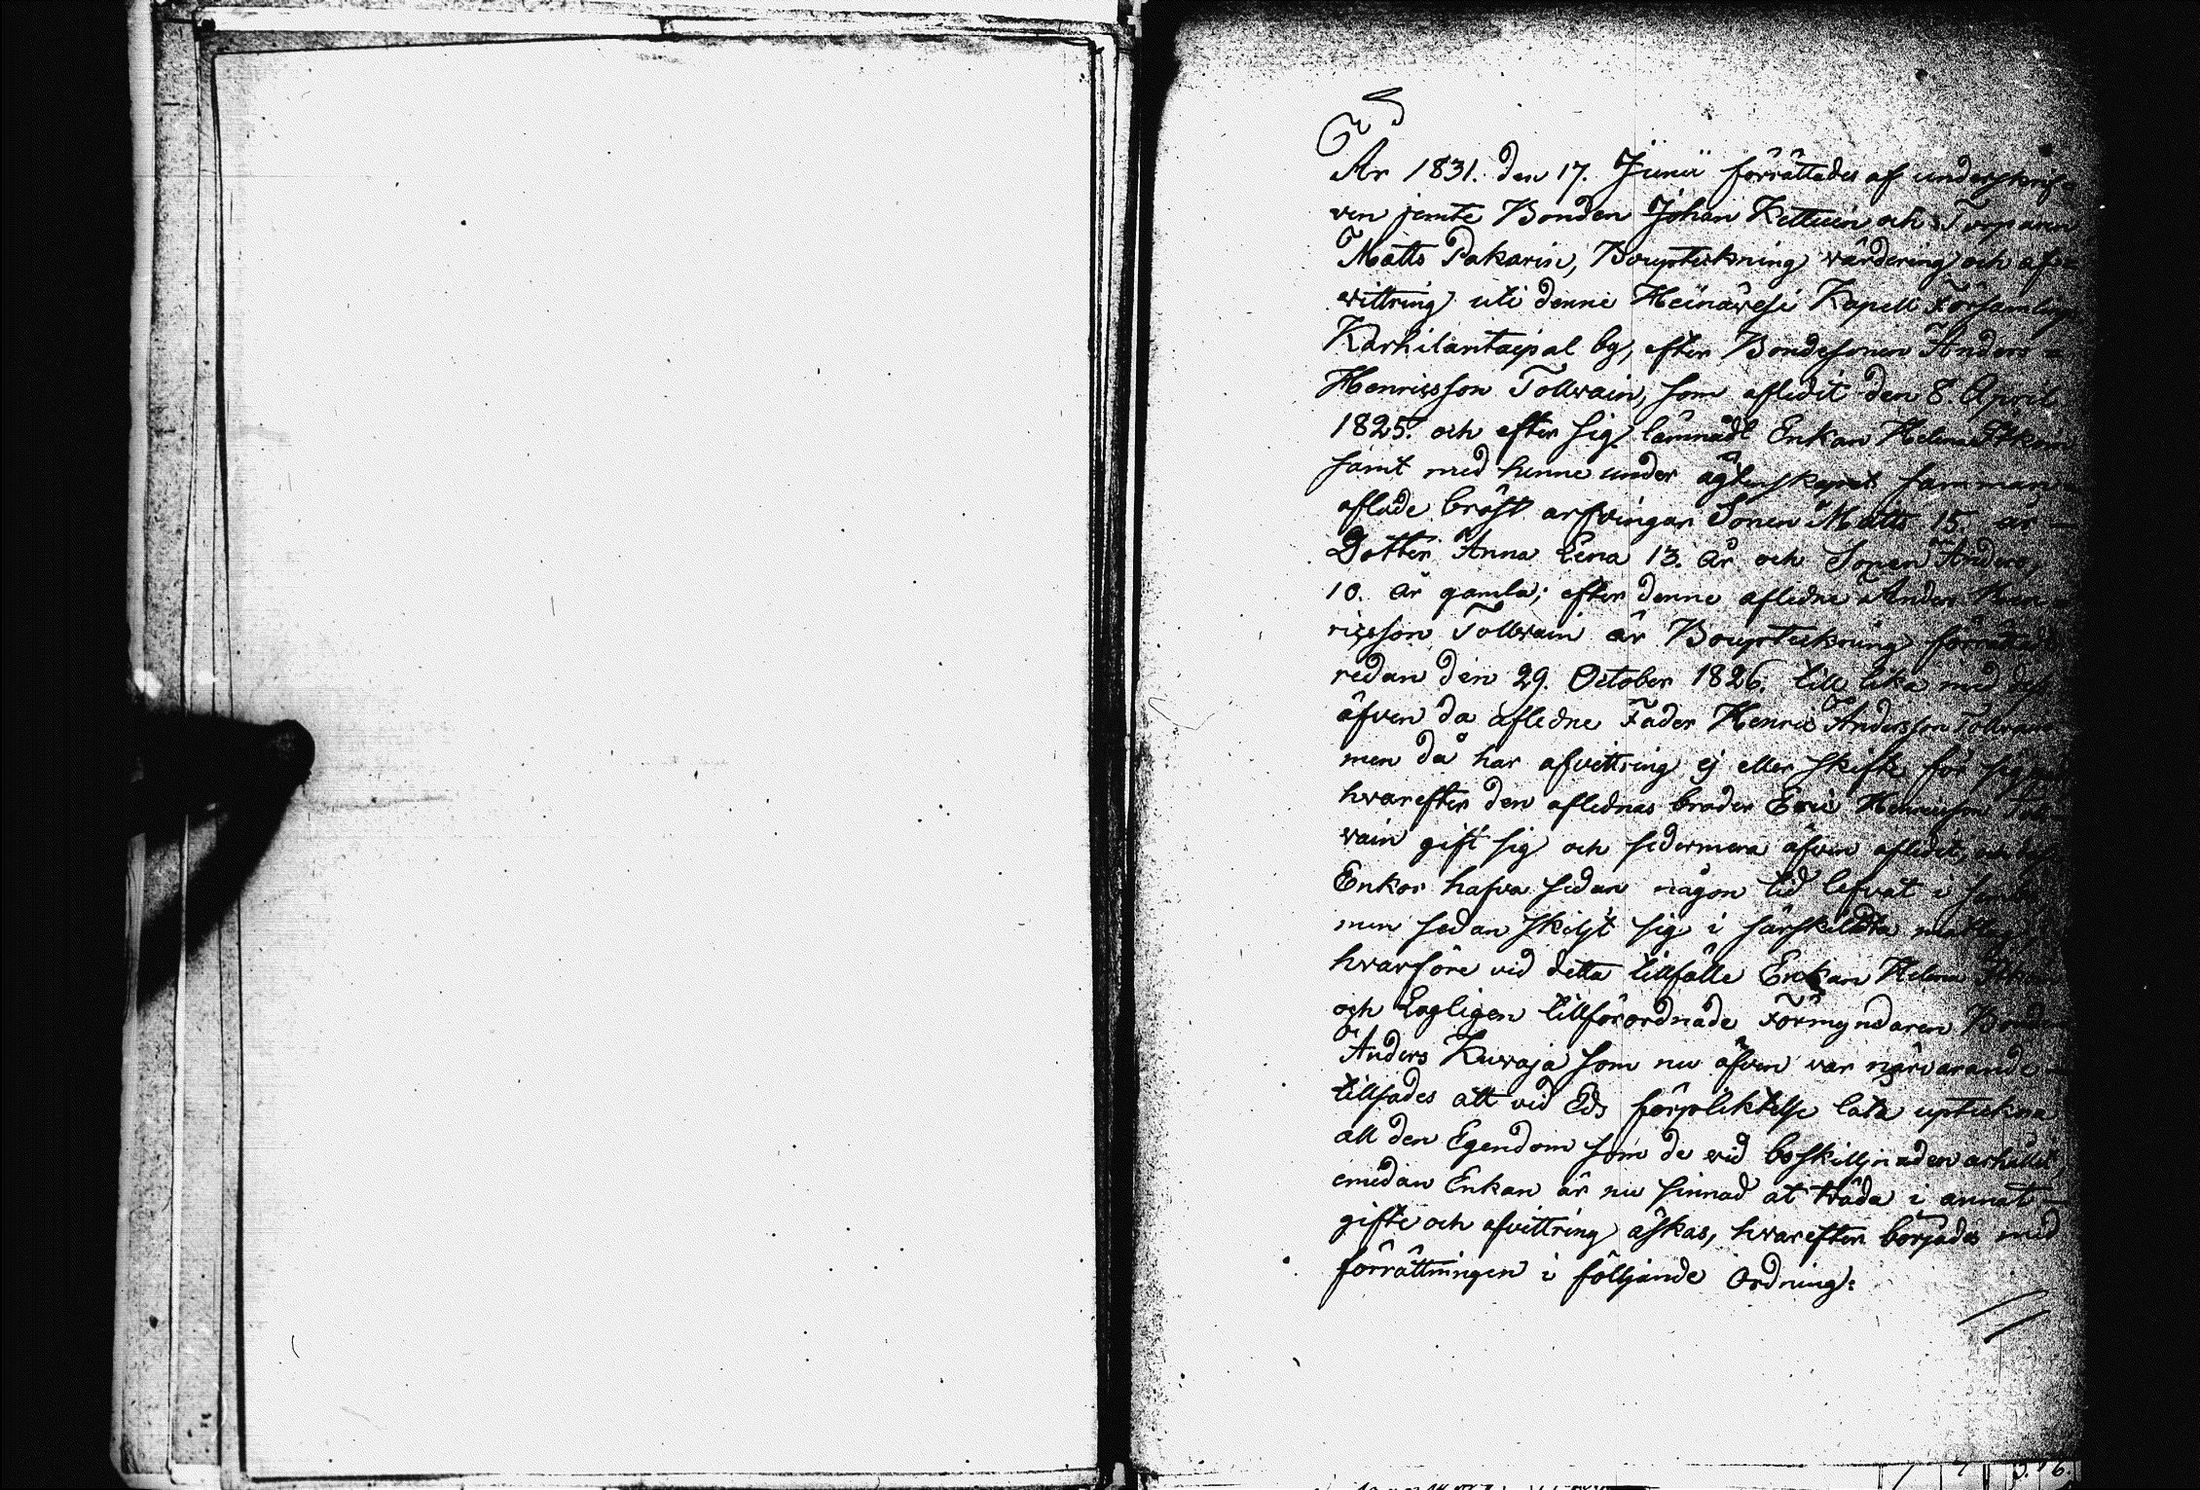 År 1831. den 17. Junii förrättades af underskrif-
ven jemte Bonden Johan Kettuin och Torparen
Matts Pakarin, Bouptekning värdering och af-
wittring uti denne Heinäwesi Kapell Församlings
Karhilantaipal by, efter Bondesonen Anders
Henricsson Tollwain, som aflidit den 8. April
1825. och efter sig lämnadt Enkan Helena
samt med henne under ägtenskapet samman
aflade bröst arfvingar Sonen Matts 15. år
Dotter Anna Lena 13. år och Sonen Anders,
10. år gamla; efter denne aflidne Anders Hen-
ricsson Tollwain är Bouptekning förrättad
redan den 29. October 1826. till lika med dess
äfven da aflidne Fader Henric Andersson Tollwain
men då har afvittring ej eller skifte för sig
hvarefter den aflidnas broder Eric Henricsson Toll-
wain gift sig och sidermera äfven aflidit,
Enkor hafva sedan någon tid lefvat i
men sedan skiljt sig i särskildta matlag
hvarföre vid detta tillfälle Enkan Helena
och Lagligen tillförordnade Förmyndaren Bonden
Anders Kuvaja som nu äfven var närvarande
tillsades att vid Eds förpliktelse låta uptekna
all den Egendom som de vid boskillnaden erhållit,
emedan Enkan är nu sinnad at träda i annat
gifte och afvittring äskas, hvarefter börjades med
förrättningen i följande Ordning: